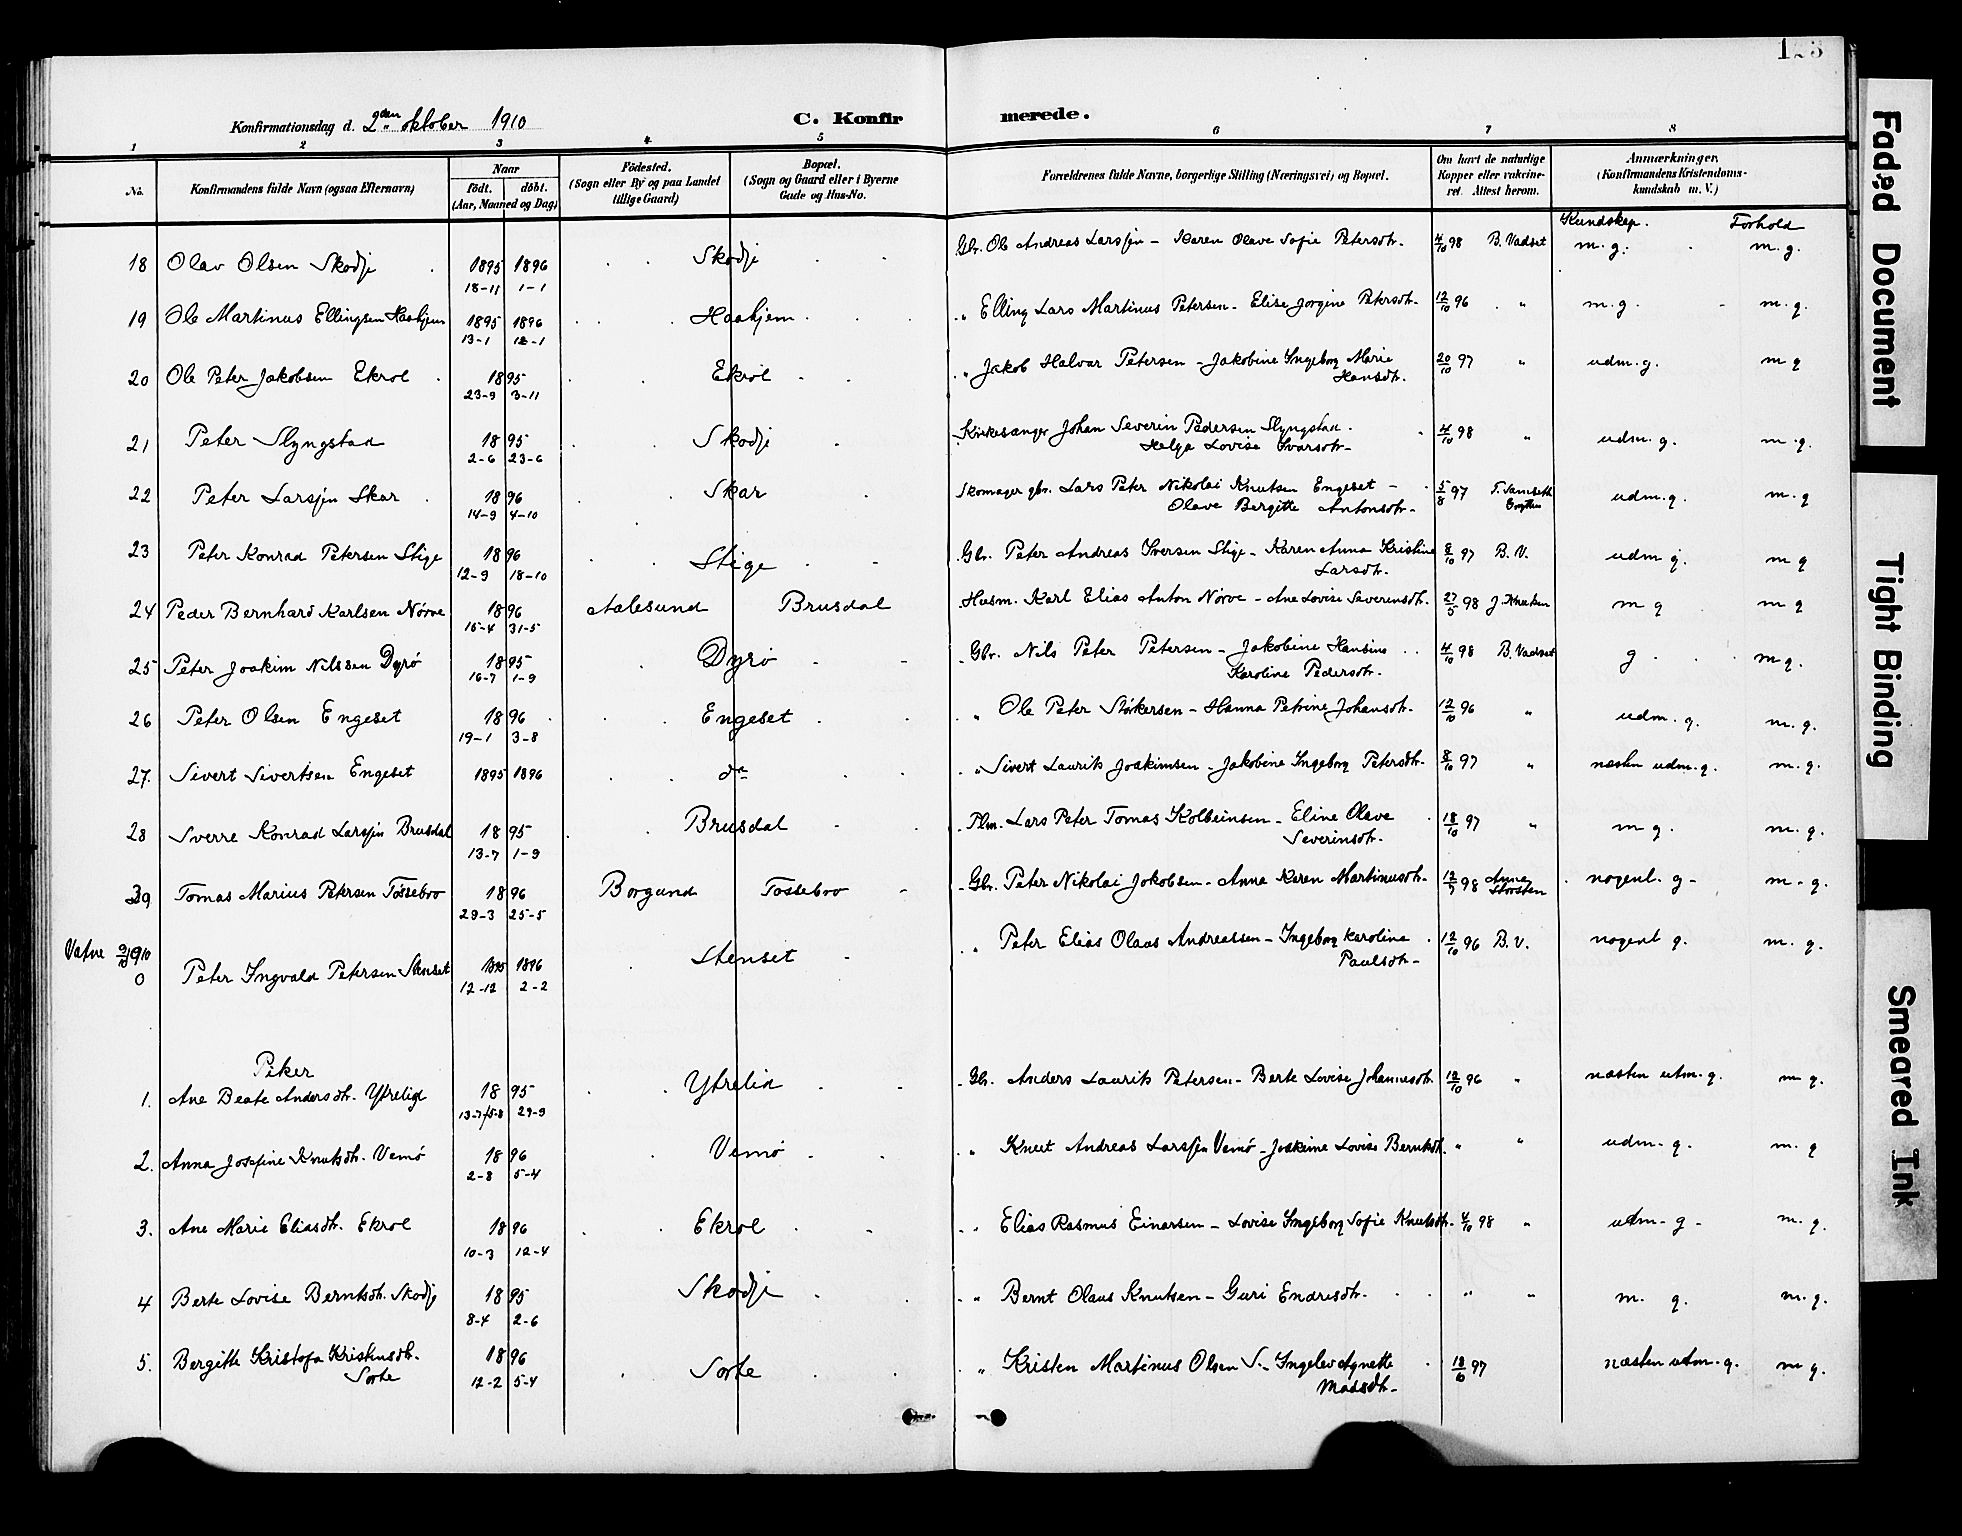 Konfirmationsdag d. 2den oktober 1910 C. Konfir merede.
1 2 3 4 5 6 7 8
No. Konfirmandens fulde Navn (ogsaa Efternavn) Naar født. døbt. (Aar, Maaned og Dag) Födested. (Sogn eller By og paa Landet tillige Gaard) Bopæl. (Sogn og Gaard eller i Byerne Gade og Hus-No. Forældrenes fulde Navne, borgerlige Stilling (Næringsvei) og Bopæl. Om havt de naturlige Kopper eller vakcineret. Attest herom. Anmærkninger. (Konfirmandens Kristendomskundskab m. V.)
Kundskap. Forhold
18 Olav Olsen Skodje 1895 1896 Skodje Gbr. Ole Andreas Larssen - Karen Olave Sofie Petersdtr. 4/10 98 B. Vadset m. g. m. g.
18-11 1-1
19 Ole Martinus Ellingsen Haahjem 1895 1896 Haahjem " Elling Lars Martinus Petersen - Elise Jorgine Petersdtr. 12/10 96 " m. g. m. g.
13-1 12-1
20 Ole Peter Jakobsen Ekrol 1895 Ekrol " Jakob Halvar Petersen - Jakobine Ingeborg Marie 20/10 97 " udm. g. m g
23-9 3-11 Hansdtr.
21 Peter Slyngstad 1895 Skodje Kirkesanger Johan Severin Pedersen Slyngstad. 4/10 98 " udm. g. m. g.
2-6 23-6 Helga Lovise Ivarsdtr.
22 Peter Larssen Skar 1896 Skar Skomager gbr. Lars Peter Nikolai Knutsen Engeset - 5/8 97 udm. g. m. g
14-9 4-10 Olave Bergitte Antonsdtr.
23 Peter Konrad Petersen Stige 1896 Stige Gbr. Peter Andreas Iversen Stige - Karen Anna Kristine 8/10 97 B. V. udm g. m g
12-9 18-10 Larsdtr.
24 Peder Bernhard Karlsen Nørve 1896 Aalesund Brusdal Husm. Karl Elias Anton Nørve - Ane Lovise Severinsdtr. 27/5 98 J. Knutsen m g m g
15-4 31-5
25 Peter Joakim Nilssen Dyrø 1895 Dyrø Gbr. Nils Peter Petersen - Jakobine Hansine 4/10 98 B. Vadset g m g.
16-7 1-9 Karoline Pedersdtr.
26 Peter Olsen Engeset 1896 Engeset " Ole Peter Størkersen - Hanna Petrine Johansdtr. 12/10 96 " udm. g. m. g.
19-1 3-8
27. Sivert Sivertsen Engeset 1895 1896 do " Sivert Laurits Joakimsen - Jakobine Ingeborg Petersdtr. 8/10 97 " næsten udm. g. m. g.
28 Sverre Konrad Larssen Brusdal 1895 Brusdal Plm. Lars Peter Tomas Kolbeinsen - Eline Olave 18/10 97 " m g. m. g.
13-7 1-9 Severinsdtr.
29 Tomas Marius Petersen Tossebro 1896 Borgund Tossebro Gbr. Peter Nikolai Jakobsen - Anna Karen Martinusdtr. 12/7 98 nogenl. g - m - g.
29-3 25-5
Vatne 9/10 1910 " Peter Elias Olaus Andreassen - Ingeborg Karoline 12/10 96 B. V. nogenl g. m. g.
0 Peter Ingvald Petersen Stenset 1895 1896 Stenset Paulsdtr.
12-12 2-2
Piker
1. Ane Beate Andersdtr. Ytrelid 1895 Ytrelid Gbr. Anders Laurits Petersen - Berte Lovise Johannesdtr. 12/10 96 " næsten utm. g. m g.
29-9
2. Anna Josefine Knutsdtr. Vemø 1896 Vemø " Knut Andreas Larssen Vemø - Joakime Lovise Berntsdtr. " " udm - g. m. g
2-3 5-4
3. Ane Marie Eliasdtr. Ekrol 1896 Ekrol " Elias Rasmus Einarsen - Lovise Ingeborg Sofie Knutsdtr. 4/10 98 " utm - g - m. g.
10-3 12-4
4 Berte Lovise Berntsdtr. Skodje 1895 Skodje " Bernt Olaus Knutsen - Guri Endresdtr. " " m. g. m. g.
8-4 2-6
5. Bergitte Kristofa Kristensdtr. 1896 Sorte " Kristen Martinus Olsen S. - Ingelev Agnette 18/6 97 næsten utm. g. m g.
Sorte 12-2 5-4 Madsdtr.
Faded Document
Tight Binding
Smeared Ink